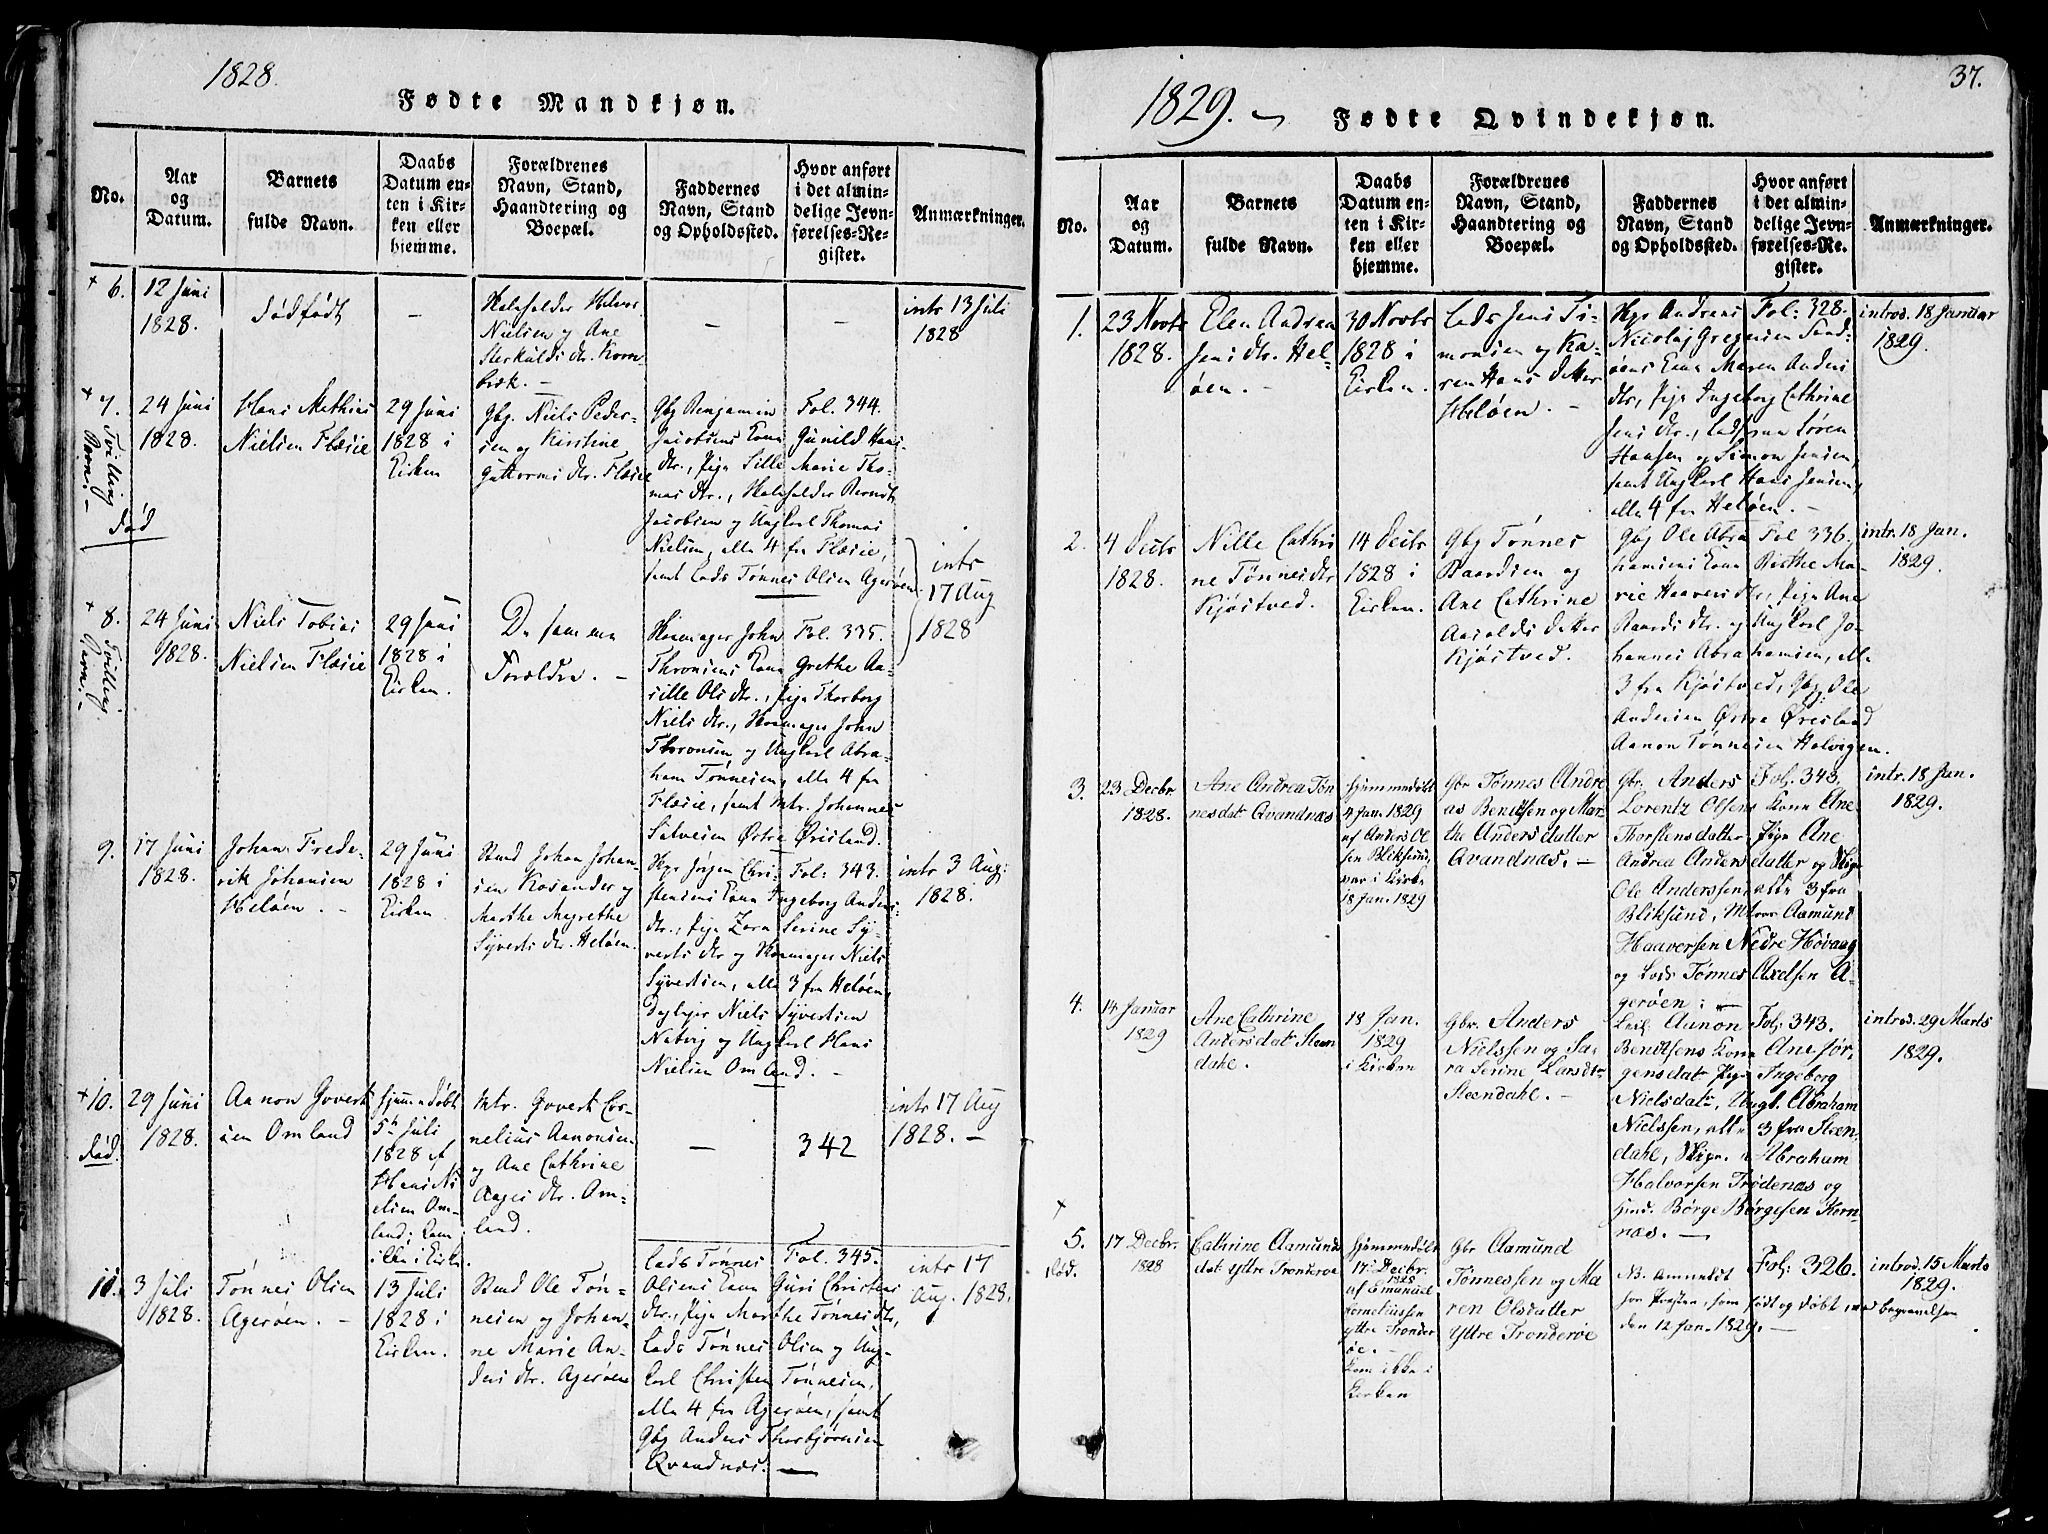 1828.
Fødte Mandkjøn.
No.
Aar
og
Datum.
Barnets
fulde Navn.
Daabs
Datum en-
ten i Kir-
ken eller
hjemme.
Forældrenes
Navn, Stand,
Haandtering og
Boepæl.
Faddernes
Navn, Stand
og Opholdssted.
Hvor anført
i det almin-
delige Jevn-
førelses-Re-
gister.
Anmærkninger.
+ 6.
12 Juni
1828.
Dødfødt
—
Nielsen og Ane
—
—
intr 13 Juli
1828
+ 7.
Tvilling
Barn. –
død
24 Juni
1828.
Hans Mathias
Nielsen Flæsie
29 Juni
1828 i
Kirken
Gbg. Niels Peder-
sen og Kirstine
Guttorms dtr. Flæsie
Gbg Benjamin
Jacobsens Kona Gunild Hans
dtr., Pige Sille Marie Tho-
mas dtr., Bernt
Jacobsen og Ungkarl Thomas
Nielsen, alle 4 fra Flæsie,
samt Lods Tønnes Olsen Agerøen
Fol. 344.
intr
17 Aug
1828
+ 8.
Tvilling
Barn. –
24 Juni
1828.
Niels Tobias
Nielsen Flæsie
29 Juni
1828 i
Kirken.
De samme
Forældre. –
Skomager John
Thronsens Kona Grethe Aa-
sille Ols dtr., Pige Thorborg
Niels dtr., Skomager John
Thronsen og Ungkarl Abra-
ham Tønnesen, alle 4 fra
Flæsie, samt Mtr. Johannes
Salvesen Østre Øvesland.
Fol. 335.
9.
17 Juni
1828.
Johan Frede-
rik Johansen
Heløen. –
29 Juni
1828 i
Kirken
Johan Johan-
sen Rosander og
Marthe Megrethe
Syverts dtr. Heløen.
Skpr Jørgen Chri-
stensens Kona Ingeborg Anders
dtr., Pige Zora Serine Sy-
verts dtr og Skomager Niels
Syvertsen, alle 3 fra Heløen,
Niels Syvertsen
og Ungkarl Hans
Nielsen Omland. –
Fol: 343.
intr 3 Aug:
1828.
+ 10.
død.
29 Juni
1828.
Aanon Govert
sen Omland
hjemmedøbt
5te Juli
1828 af
Hans Ni
elsen Om-
land; kom
ikke i Kirken.
Mtr. Govert Cor-
nelius Aanonsen
og Ane Cathrine
Aages dtr. Om-
land.
—
342
intr 17 Aug
1828. –
11.
3 Juli
1828.
Tønnes Olsen
Agerøen. –
13 Juli
1828 i
Kirken.
Ole Tøn-
nesen og Johan-
ne Marie An-
ders dtr. Agerøen
Lods Tønnes
Olsens Kona Guri Christens
dtr., Pige Marthe Tønnes dtr,
Lods Tønnes Olsen og Ung-
karl Christen Tønnesen,
alle 4 fra Agerøen, samt
Gbg Anders Thorbjørnsen
Qvandnæs. —
Fol. 345.
intr 17
Aug. 1828.
1829.
37.
Fødte Qvindekjøn.
No.
Aar
og
Datum.
Barnets
fulde Navn.
Daabs
Datum en-
ten i Kir-
ken eller
hjemme.
Forældrenes
Navn, Stand,
Haandtering og
Boepæl.
Faddernes
Navn, Stand
og Opholdssted.
Hvor anført
i det almin-
delige Jevn-
førelses-Re-
gister.
Anmærkninger.
1.
23 Novbr
1828.
Elen Andrea
Jens dtr. Hel-
øen. –
30 Novbr
1828 i
Kirken.
Lods Jens Si-
monsen og Ka-
ren Hans datter
Heløen. –
Skpr Andreas
Nicolaj Gregersen Sand-
øens Kona Maren Anders
dtr, Pige Ingeborg Cathrine
Jens dtr., Lodserne Søren
Hansen og Simon Jensen,
samt Ungkarl Hans Jensen,
alle 4 fra Heløen. –
Fol: 328.
introd. 18 Januar
1829.
2.
4 Decbr
1828.
Nille Cathri
ne Tønnes dtr
Kjøstved.
14 Decbr
1828 i
Kirken.
Gbg Tønnes
Baardsen og
Ane Cathrine
Aasolds datter
Kjøstved.
Gbg Ole Abra
hamsens Kona Berthe Ma-
rie Haavers dtr, Pige Ane
Baards dtr. og Ungkarl Jo-
hannes Abrahamsen, alle
3 fra Kjøstved, Gbg Ole
Andersen Østre Øvesland
Aanon Tønnesen Holvigen.
Fol 336.
intr. 18 Jan.
1829.
3.
23 Decbr
1828.
Ane Andrea Tøn
nesdat Qvandnæs
hjemmedøbt
4 Jan. 1829
af Anders Ol
sen Bliksund,
var i Kirke
18 Jan. 1829
Gbr. Tønnes Andre
as Bendtsen og Mar-
the Andersdatter
Qvandnæs. –
Gbr. Anders
Lorentz Olsens Kone Ane
Thorstensdatter Pign Ane
Andrea Andersdatter og Skpr
Ole Anderssen, alle 3 fra
Bliksund, Mtroes Aamund
Haaversen Nedre Høvaag
og Lods Tønnes Axelsen A-
gerøen: —
Fol: 343.
intr. 18 Jan.
1829.
4.
14 Januar
1829
Ane Cathrine
Andersdat Steen-
dahl.
18 Jan.
1829
i Kirken
Gbr. Anders
Nielssen og Sa-
ra Serine Larsdtr
Steendahl. –
Aanon
Bendtsens Kone Ane Jør-
gensdat Pign Ingeborg
Nielsdatr, Ungk. Abraham
Nielssen, alle 3 fra Steen-
dahl, Skipr. Abraham
Halvorsen Trødenæs og
Børge Børgesen Korn-
næs. –
Fol: 343.
introd. 29 Marts
1829.
+
5.
død.
17 Decbr.
1828
Cathrine Aamunds
dat Yttre Tronderøe
hjemmedøbt
17: Decbr.
1828
af Emanuel
Corneliussen
yttre Tronder
øe. –
kom ikke i
Kirken
Gbr Aamund
Tønnessen og Ma
ren Olsdatter
Yttre Tronderøe
NB. Anmeldt
for Præsten, som født og døbt, ved begravelsen
den 12 Jan. 1829. —
Fol: 326.
introd. 15 Marts
1829.